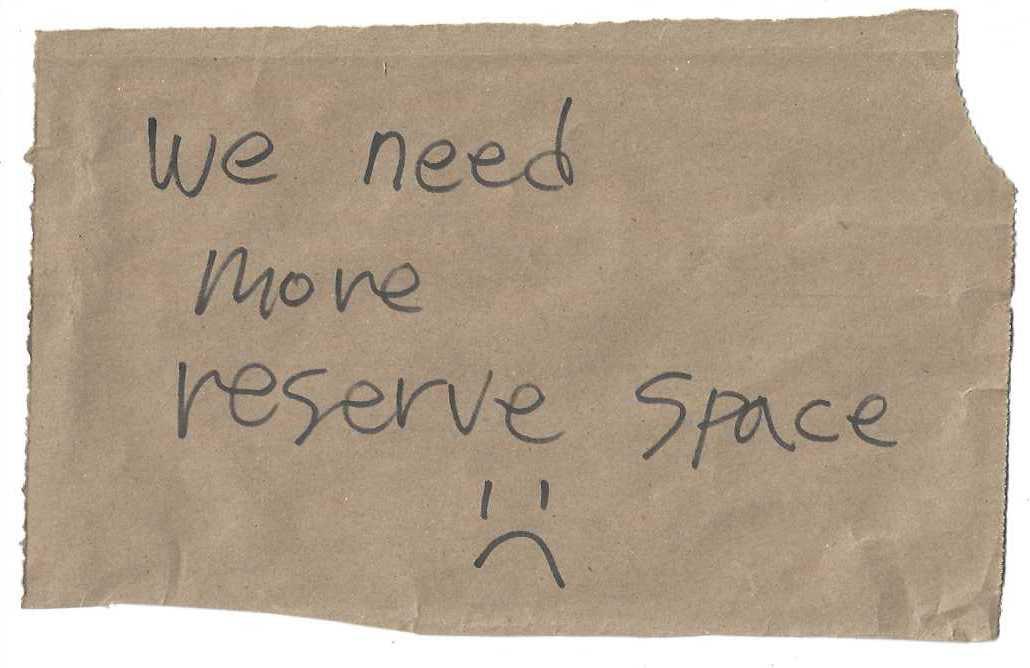 We need
more
reserve space